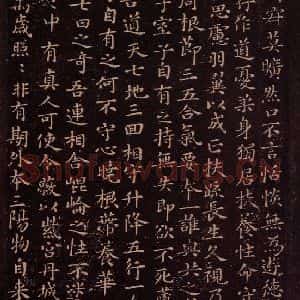 舜英曠然口不言恬惔無為遊德
存作道憂柔身獨居扶養性命守
思慮羽翼以成正扶踈長生久視乃
根節三五合氣要本一誰與共之
子室子自有之持無失即欲不死藏
吾道天七地三回相守升降五行一
子自有之何不守心曉根蔕養華
七日之奇吾連相合崐崘之性不迷
中有真人可使令蔽以紫宮丹城
萬歲照照非有期外本三陽物自来